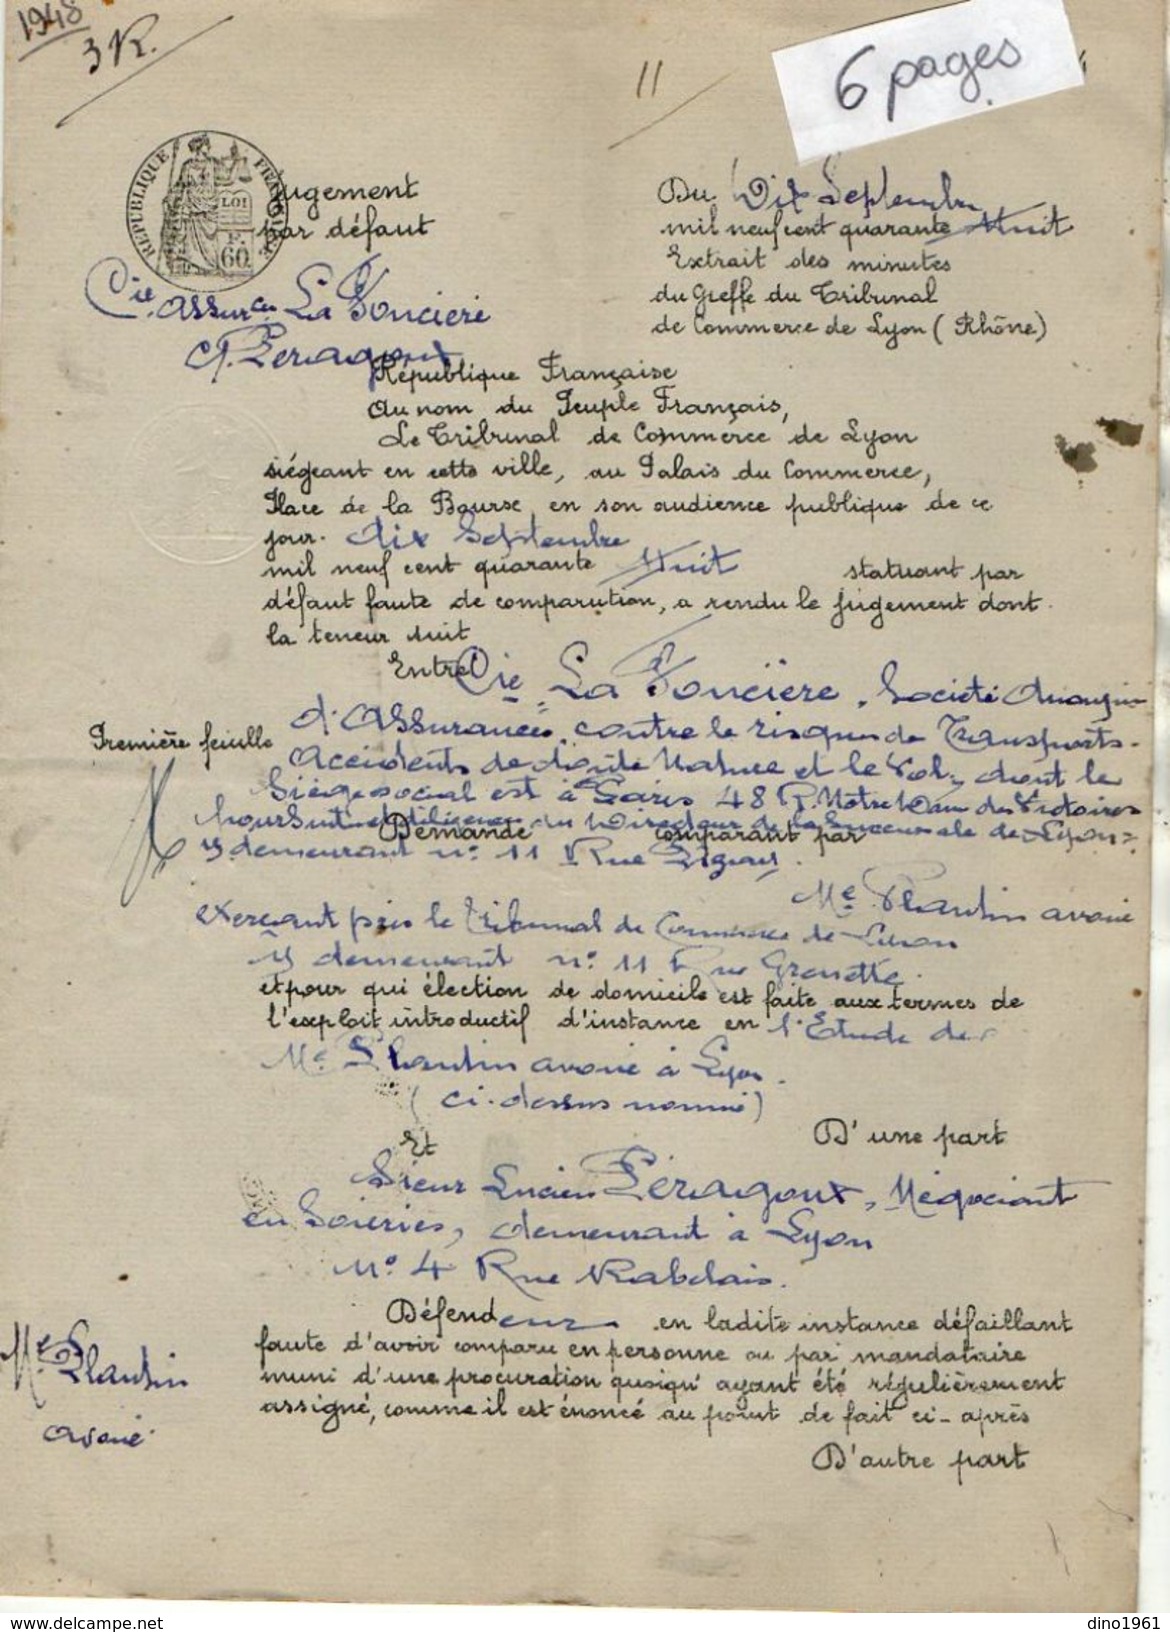 1948
3 R.
11
6 pages
RÉPUBLIQUE FRANÇAISE
LOI
60
Jugement
par défaut
Cie Assurces La Foncière
C/ Peragoux
Du Dix Septembre
mil neuf cent quarante Huit
Extrait des minutes
du Greffe du Tribunal
de Commerce de Lyon (Rhône)
République Française
Au nom du Peuple Français,
Le Tribunal de Commerce de Lyon
siégeant en cette ville, au Palais du Commerce,
Place de la Bourse, en son audience publique de ce
jour. dix Septembre
mil neuf cent quarante Huit statuant par
défaut faute de comparution, a rendu le jugement dont
la teneur suit
Entre Cie La Foncière, Société Anonyme
Première feuille
d'Assurances contre le risque de Transports.
Accidents de toute Nature et le Vol, dont le
Siège social est à Paris 48 R. Notre Dame des Victoires
poursuite et diligences du Directeur de la Succursale de Lyon
Demande comparant par
y demeurant n° 11 Rue
Me Plantin avoué
exerçant près le Tribunal de Commerce de Lyon
y demeurant n° 11 Rue Grenette.
et pour qui élection de domicile est faite aux termes de
l'exploit introductif d'instance en l'Etude de
Me Plantin avoué à Lyon.
(ci-dessus nommé)
D'une part
Et
Sieur Lucien Péragoux, Négociant
en Soieries, demeurant à Lyon
N° 4 Rue Rabelais.
Défendeur en ladite instance défaillant
faute d'avoir comparu en personne ou par mandataire
muni d'une procuration quoiqu'ayant été régulièrement
assigné, comme il est énoncé au point de fait ci-après
D'autre part
Me Plantin
avoué
dino1961